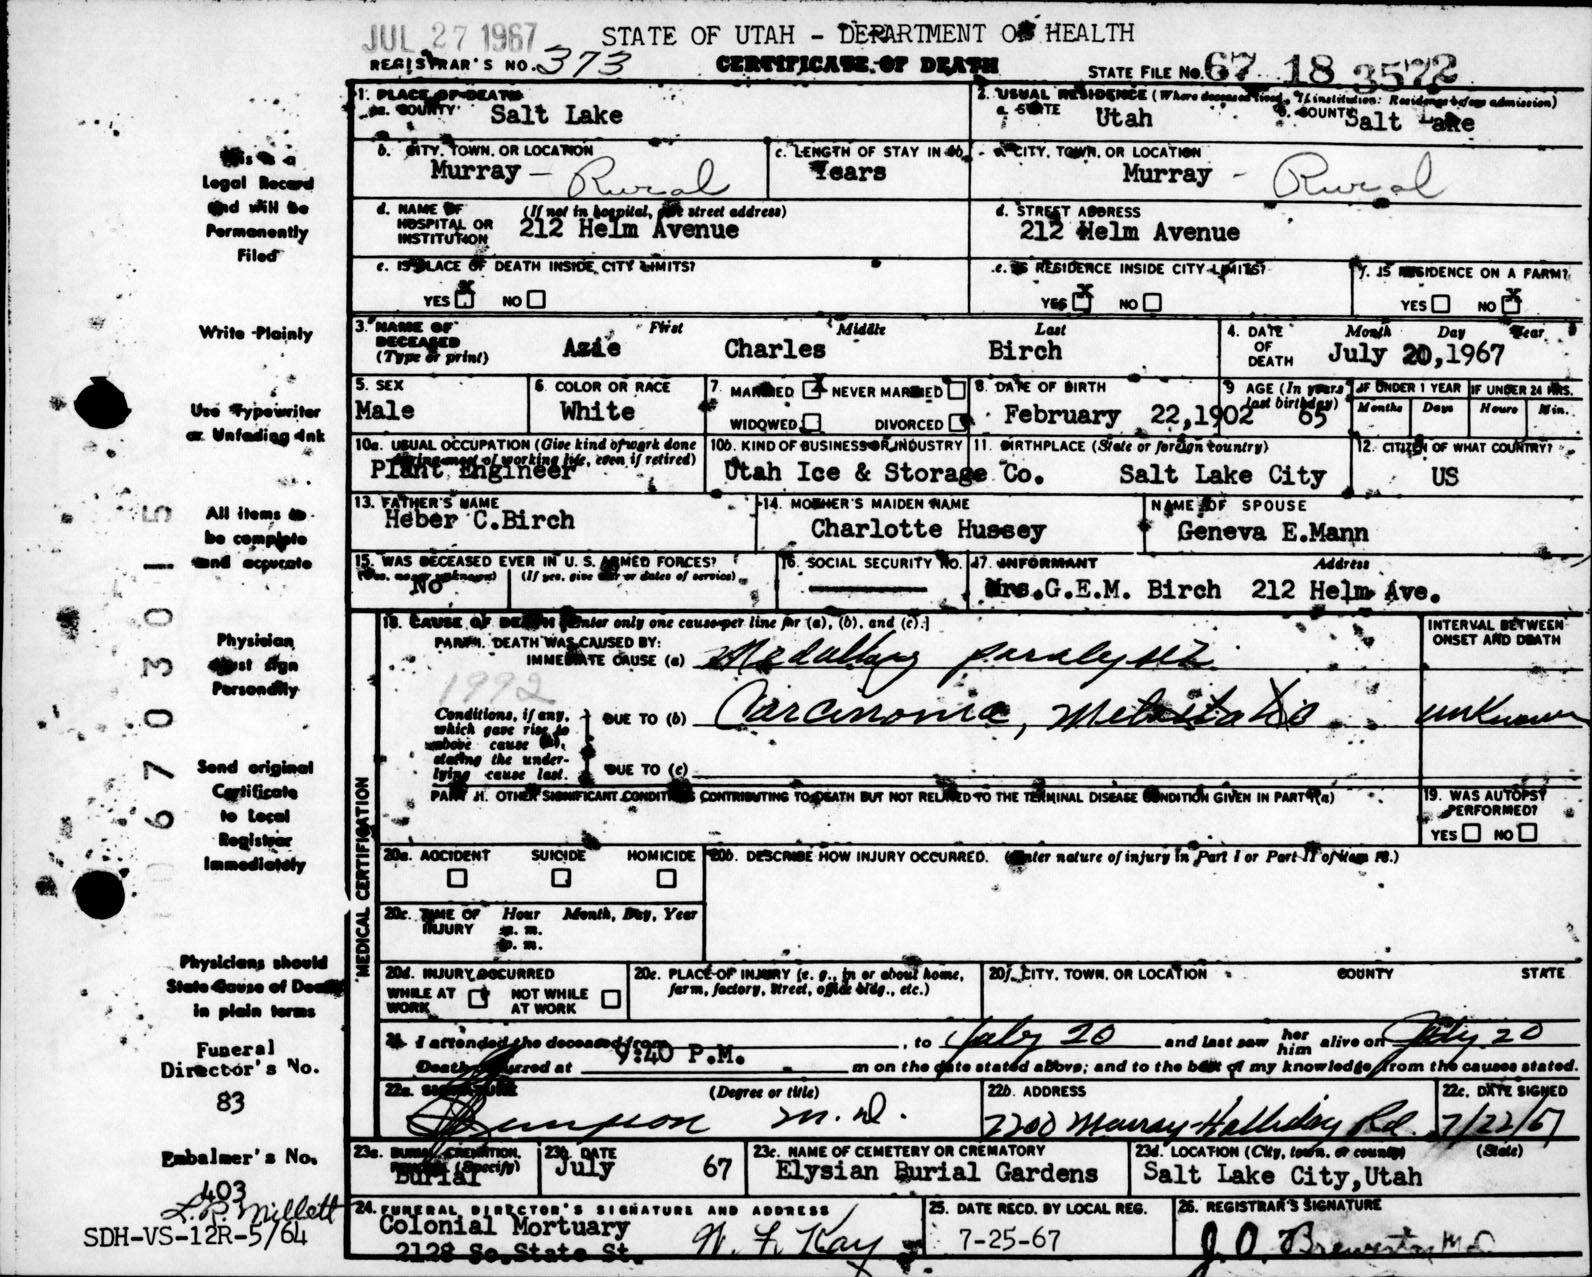 JUL 27 1967
STATE OF UTAH - DEPARTMENT OF HEALTH
REGISTRAR'S NO. 373
CERTIFICATE OF DEATH
STATE FILE No. 67 18 3572
1. PLACE OF DEATH
a. COUNTY Salt Lake
2. USUAL RESIDENCE (Where deceased lived. If institution: Residence before admission)
a. STATE Utah b. COUNTY Salt Lake
b. CITY, TOWN, OR LOCATION Murray - Rural
c. LENGTH OF STAY IN 1b Years
c. CITY, TOWN, OR LOCATION Murray - Rural
d. NAME OF HOSPITAL OR INSTITUTION (If not in hospital, give street address) 212 Helm Avenue
d. STREET ADDRESS 212 Helm Avenue
e. IS PLACE OF DEATH INSIDE CITY LIMITS?
YES X NO
e. IS RESIDENCE INSIDE CITY LIMITS?
YES X NO
f. IS RESIDENCE ON A FARM?
YES NO X
3. NAME OF DECEASED (Type or print)
First Middle Last
Azie Charles Birch
4. DATE OF DEATH Month Day Year
July 20,1967
5. SEX Male
6. COLOR OR RACE White
7. MARRIED X NEVER MARRIED
WIDOWED DIVORCED
8. DATE OF BIRTH February 22,1902
9 AGE (In years last birthday) 65
IF UNDER 1 YEAR Months Days
IF UNDER 24 HRS. Hours Min.
10a. USUAL OCCUPATION (Give kind of work done during most of working life, even if retired)
Plant Engineer
10b. KIND OF BUSINESS OR INDUSTRY
Utah Ice & Storage Co.
11. BIRTHPLACE (State or foreign country)
Salt Lake City
12. CITIZEN OF WHAT COUNTRY?
US
13. FATHER'S NAME
Heber C.Birch
14. MOTHER'S MAIDEN NAME
Charlotte Hussey
NAME OF SPOUSE
Geneva E.Mann
15. WAS DECEASED EVER IN U. S. ARMED FORCES?
(Yes, no, or unknown) (If yes, give war or dates of service)
No
16. SOCIAL SECURITY NO.
17. INFORMANT Address
Mrs.G.E.M. Birch 212 Helm Ave.
18. CAUSE OF DEATH [Enter only one cause per line for (a), (b), and (c).]
INTERVAL BETWEEN ONSET AND DEATH
PART I. DEATH WAS CAUSED BY:
IMMEDIATE CAUSE (a) Medullary paralysis
1992
Conditions, if any, which gave rise to above cause (a), stating the underlying cause last.
DUE TO (b) Carcinoma, Metastatic unknown
DUE TO (c)
PART II. OTHER SIGNIFICANT CONDITIONS CONTRIBUTING TO DEATH BUT NOT RELATED TO THE TERMINAL DISEASE CONDITION GIVEN IN PART I(a)
19. WAS AUTOPSY PERFORMED?
YES NO
20a. ACCIDENT SUICIDE HOMICIDE
20b. DESCRIBE HOW INJURY OCCURRED. (Enter nature of injury in Part I or Part II of item 18.)
20c. TIME OF INJURY Hour Month, Day, Year
a. m.
p. m.
20d. INJURY OCCURRED
WHILE AT WORK NOT WHILE AT WORK
20e. PLACE OF INJURY (e. g., in or about home, farm, factory, street, office bldg., etc.)
20f. CITY, TOWN, OR LOCATION COUNTY STATE
21. I attended the deceased from , to July 20 and last saw her him alive on July 20
Death occurred at 9:40 P.M. m on the date stated above; and to the best of my knowledge, from the causes stated.
22a. SIGNATURE (Degree or title)
M.D.
22b. ADDRESS
Murray Holliday Rd.
22c. DATE SIGNED
7/22/67
23a. BURIAL, CREMATION, REMOVAL (Specify)
Burial
23b. DATE
July 67
23c. NAME OF CEMETERY OR CREMATORY
Elysian Burial Gardens
23d. LOCATION (City, town, or county) (State)
Salt Lake City,Utah
24. FUNERAL DIRECTOR'S SIGNATURE AND ADDRESS
Colonial Mortuary
2128 So.State St.
W. F. Kay
25. DATE RECD. BY LOCAL REG.
7-25-67
26. REGISTRAR'S SIGNATURE
MEDICAL CERTIFICATION
This is a
Legal Record
and will be
Permanently
Filed
Write Plainly
Use Typewriter
or Unfading Ink
All items to
be complete
and accurate
Physician
Must sign
Personally
Send original
Certificate
to Local
Registrar
Immediately
Physicians should
State Cause of Death
in plain terms
Funeral
Director's No.
83
Embalmer's No.
403
L. P. Millett
SDH-VS-12R-5/64